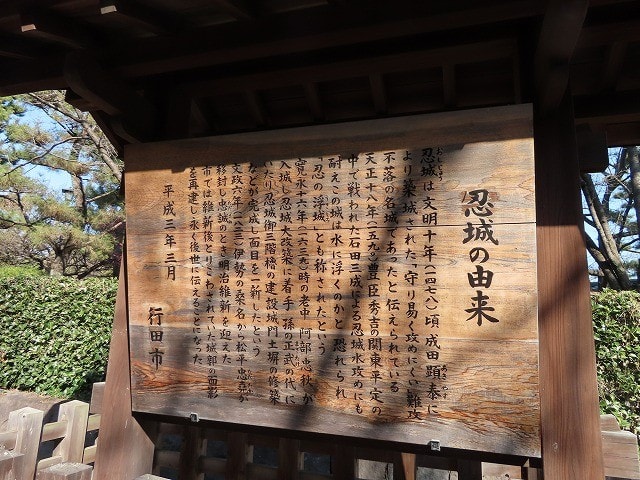 忍城の由来
忍城は文明十年(一四七八)頃 成田顕泰に
より築城された 守り易く攻めにくい難攻
不落の名城であったと伝えられている
天正十八年(一五九〇)豊臣秀吉の関東平定の
中で戦われた石田三成による忍城水攻めにも
耐えこの城は水に浮くのかと 恐れられ
「忍の浮城」とも称されたという
寛永十六年(一六三九)時の老中 阿部忠秋が
入城し忍城大改築に着手 孫の正武の代に
いたり忍城御三階櫓の建設城門土塀の修築
などが完成し面目を一新したという
文政六年(一八二三)伊勢の桑名から松平忠堯が
移封し 忠誠のとき明治維新を迎えた
市では維新後とりこわされていた城郭の面影
を再建し永く後世に伝えることになった
平成三年三月
行田市